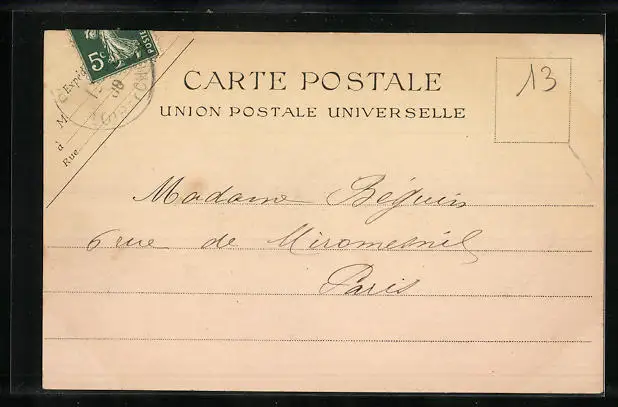 5c POSTES
Expéd
M
à
Rue
CARTE POSTALE
UNION POSTALE UNIVERSELLE
13
Madame Béguin
6 rue de Miromesnil
Paris